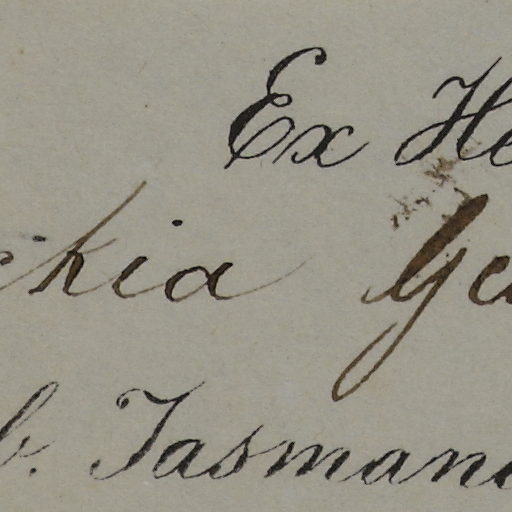 Ex He
ckia Ge
b. Tasman